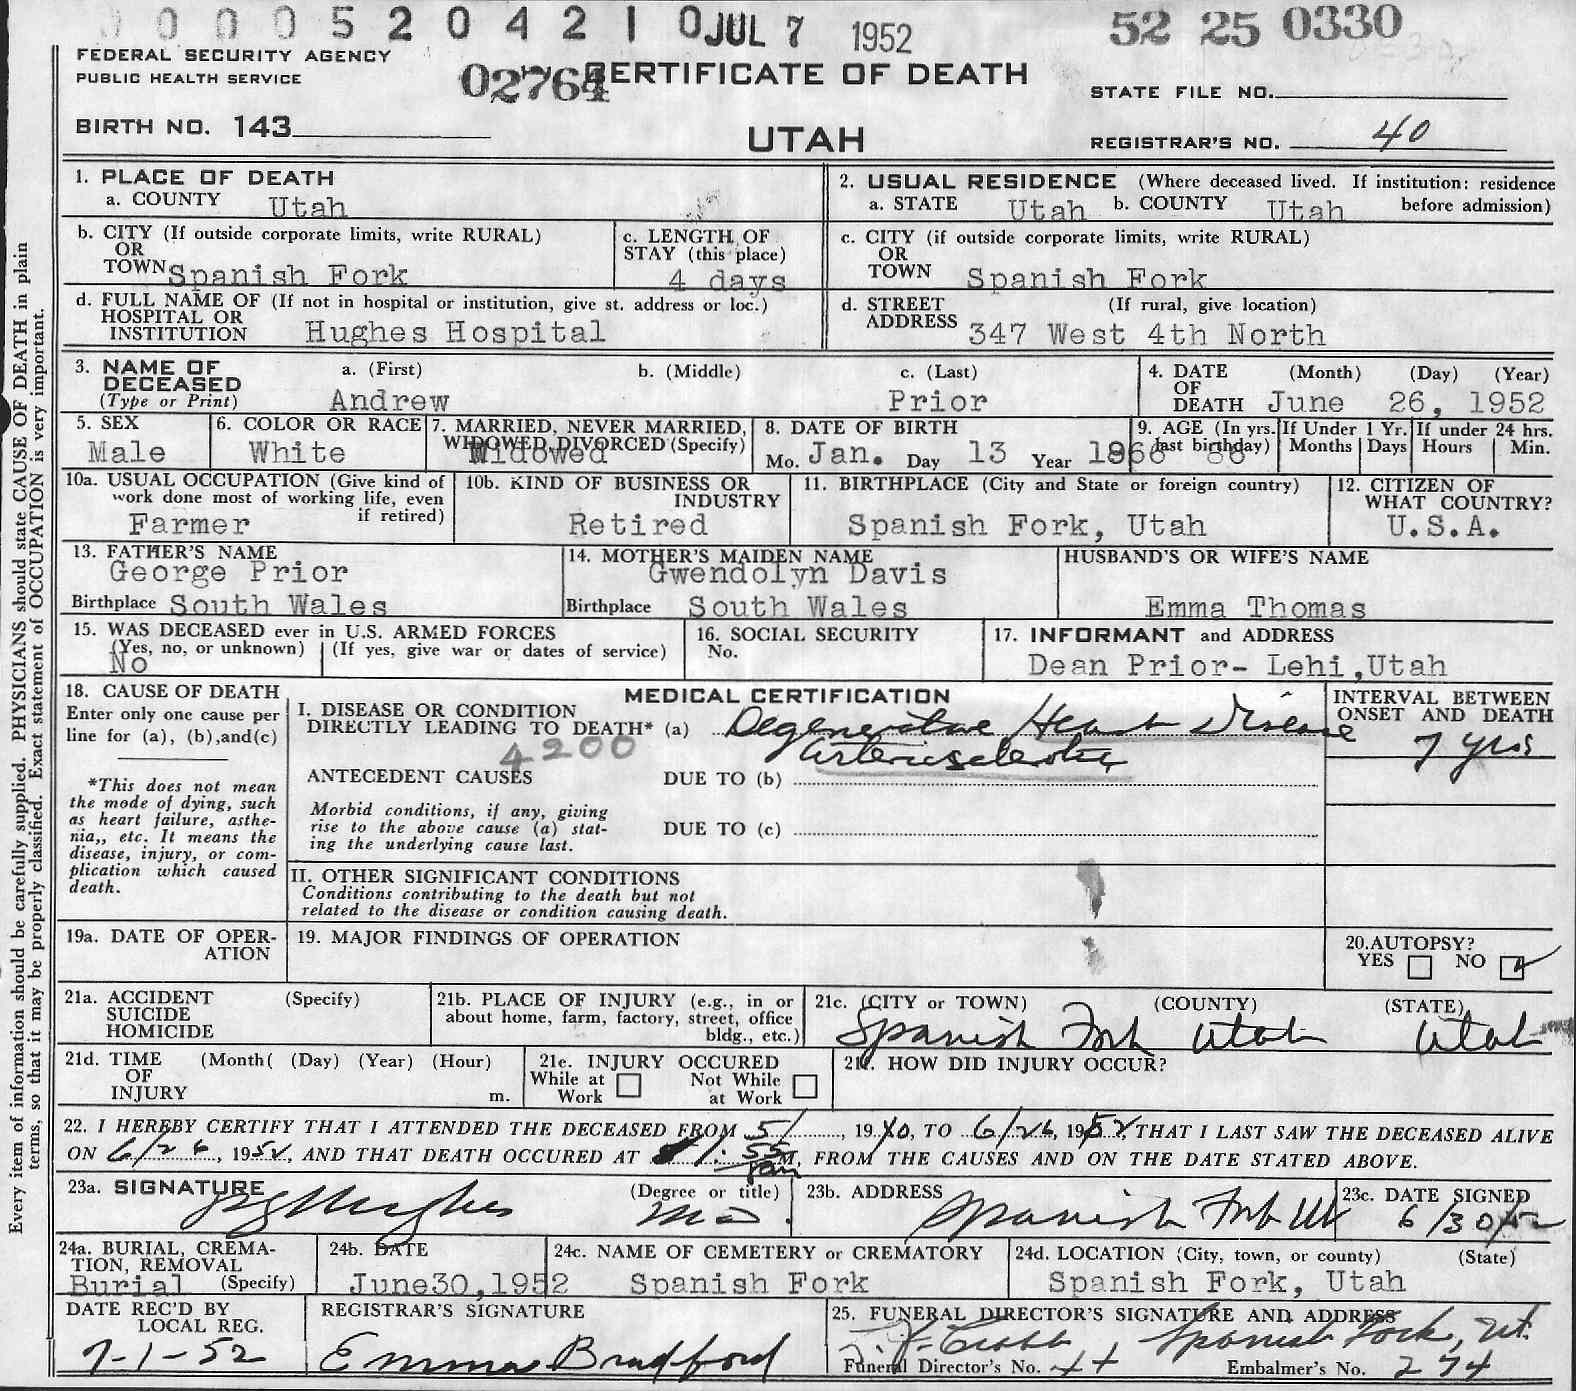 0 0 0 5 2 0 4 2 1 0 JUL 7 1952 52 25 0330
FEDERAL SECURITY AGENCY
PUBLIC HEALTH SERVICE
02764
CERTIFICATE OF DEATH
STATE FILE NO.
BIRTH NO. 143
UTAH
REGISTRAR'S NO. 40
1. PLACE OF DEATH
a. COUNTY Utah
2. USUAL RESIDENCE (Where deceased lived. If institution: residence before admission)
a. STATE Utah b. COUNTY Utah
b. CITY (If outside corporate limits, write RURAL)
OR
TOWN Spanish Fork
c. LENGTH OF
STAY (this place)
4 days
c. CITY (if outside corporate limits, write RURAL)
OR
TOWN Spanish Fork
d. FULL NAME OF (If not in hospital or institution, give st. address or loc.)
HOSPITAL OR
INSTITUTION Hughes Hospital
d. STREET (If rural, give location)
ADDRESS 347 West 4th North
3. NAME OF DECEASED (Type or Print)
a. (First) b. (Middle) c. (Last)
Andrew Prior
4. DATE OF DEATH (Month) (Day) (Year)
June 26, 1952
5. SEX
Male
6. COLOR OR RACE
White
7. MARRIED, NEVER MARRIED,
WIDOWED, DIVORCED (Specify)
Widowed
8. DATE OF BIRTH
Mo. Jan. Day 13 Year 1866
9. AGE (In yrs. last birthday)
86
If Under 1 Yr.
Months Days
If under 24 hrs.
Hours Min.
10a. USUAL OCCUPATION (Give kind of
work done most of working life, even
if retired)
Farmer
10b. KIND OF BUSINESS OR
INDUSTRY
Retired
11. BIRTHPLACE (City and State or foreign country)
Spanish Fork, Utah
12. CITIZEN OF
WHAT COUNTRY?
U.S.A.
13. FATHER'S NAME
George Prior
Birthplace South Wales
14. MOTHER'S MAIDEN NAME
Gwendolyn Davis
Birthplace South Wales
HUSBAND'S OR WIFE'S NAME
Emma Thomas
15. WAS DECEASED ever in U.S. ARMED FORCES
(Yes, no, or unknown) (If yes, give war or dates of service)
No
16. SOCIAL SECURITY
No.
17. INFORMANT and ADDRESS
Dean Prior- Lehi,Utah
18. CAUSE OF DEATH
Enter only one cause per
line for (a), (b),and(c)
*This does not mean
the mode of dying, such
as heart failure, asthe-
nia,, etc. It means the
disease, injury, or com-
plication which caused
death.
MEDICAL CERTIFICATION
I. DISEASE OR CONDITION
DIRECTLY LEADING TO DEATH* (a) Degenerative Heart Disease
4200
Arteriosclerotic
ANTECEDENT CAUSES DUE TO (b)
Morbid conditions, if any, giving
rise to the above cause (a) stat-
ing the underlying cause last.
DUE TO (c)
INTERVAL BETWEEN
ONSET AND DEATH
7 yrs
II. OTHER SIGNIFICANT CONDITIONS
Conditions contributing to the death but not
related to the disease or condition causing death.
19a. DATE OF OPER-
ATION
19. MAJOR FINDINGS OF OPERATION
20.AUTOPSY?
YES NO
21a. ACCIDENT (Specify)
SUICIDE
HOMICIDE
21b. PLACE OF INJURY (e.g., in or
about home, farm, factory, street, office
bldg., etc.)
21c. (CITY or TOWN) (COUNTY) (STATE)
Spanish Fork Utah Utah
21d. TIME (Month( (Day) (Year) (Hour)
OF
INJURY m.
21e. INJURY OCCURED
While at Work Not While at Work
21f. HOW DID INJURY OCCUR?
22. I HEREBY CERTIFY THAT I ATTENDED THE DECEASED FROM 5/ , 1940, TO 6/26, 1952, THAT I LAST SAW THE DECEASED ALIVE
ON 6/26, 1952, AND THAT DEATH OCCURED AT 1:55 pm M, FROM THE CAUSES AND ON THE DATE STATED ABOVE.
23a. SIGNATURE (Degree or title)
Hughes MD.
23b. ADDRESS
Spanish Fork Ut
23c. DATE SIGNED
6/30/52
24a. BURIAL, CREMA-
TION, REMOVAL
Burial (Specify)
24b. DATE
June30,1952
24c. NAME OF CEMETERY or CREMATORY
Spanish Fork
24d. LOCATION (City, town, or county) (State)
Spanish Fork, Utah
DATE REC'D BY
LOCAL REG.
7-1-52
REGISTRAR'S SIGNATURE
Emma Bradford
25. FUNERAL DIRECTOR'S SIGNATURE AND ADDRESS
Spanish Fork, Ut.
Funeral Director's No. Embalmer's No. 274
Every item of information should be carefully supplied. PHYSICIANS should state CAUSE OF DEATH in plain
terms, so that it may be properly classified. Exact statement of OCCUPATION is very important.